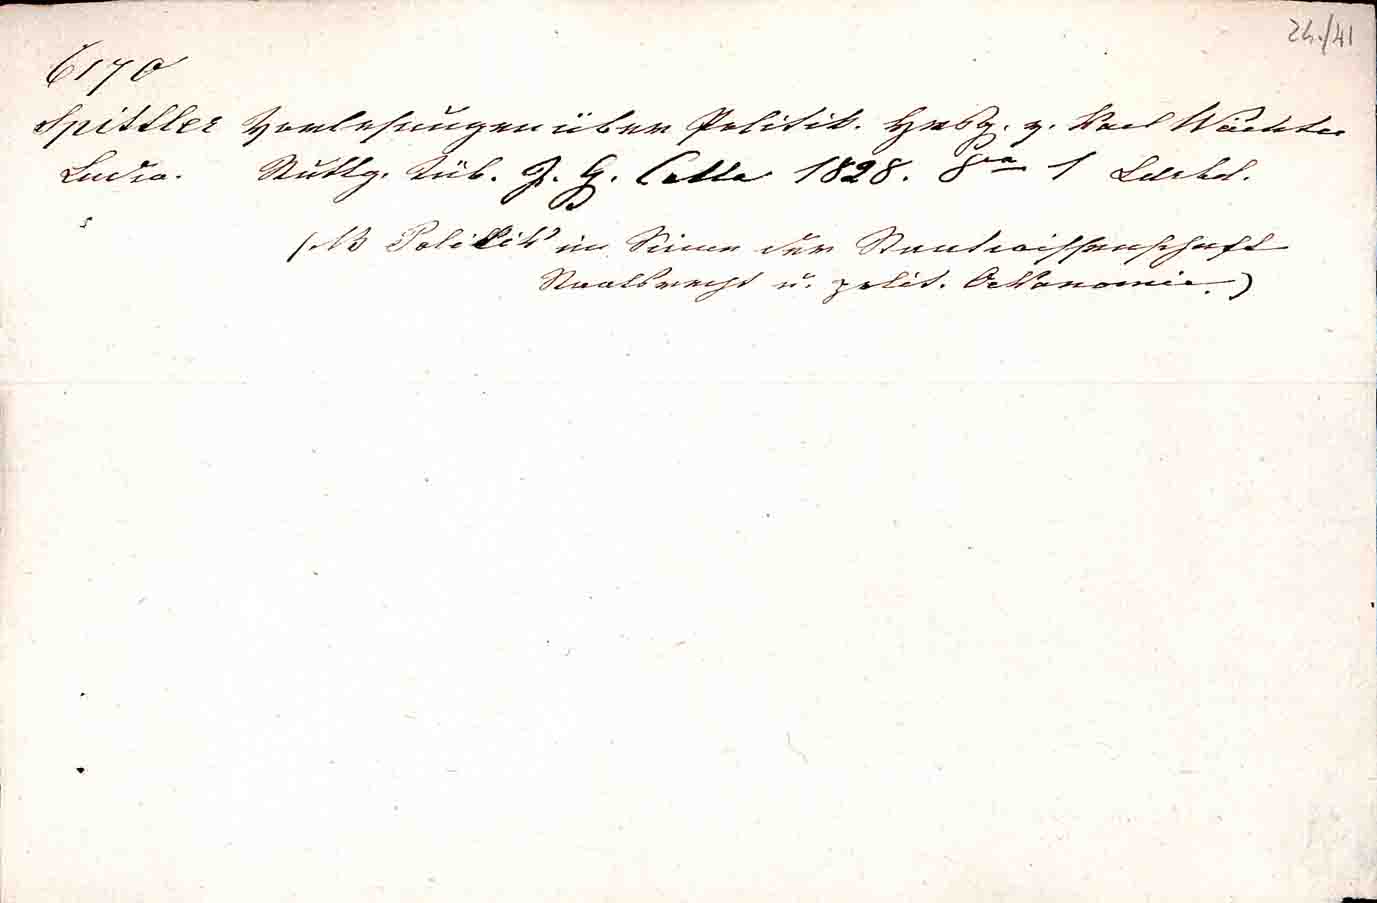 24./41
6170
Spittler Vorlesungen über Politik. Hrsg. v. Karl Wächter
Ludw. Stuttg. Tüb. J. G. Cotta 1828. 8vo 1
(NB Politik im Sinne der Staatswissenschaft
Staatsrecht u. polit. Oekonomie.)